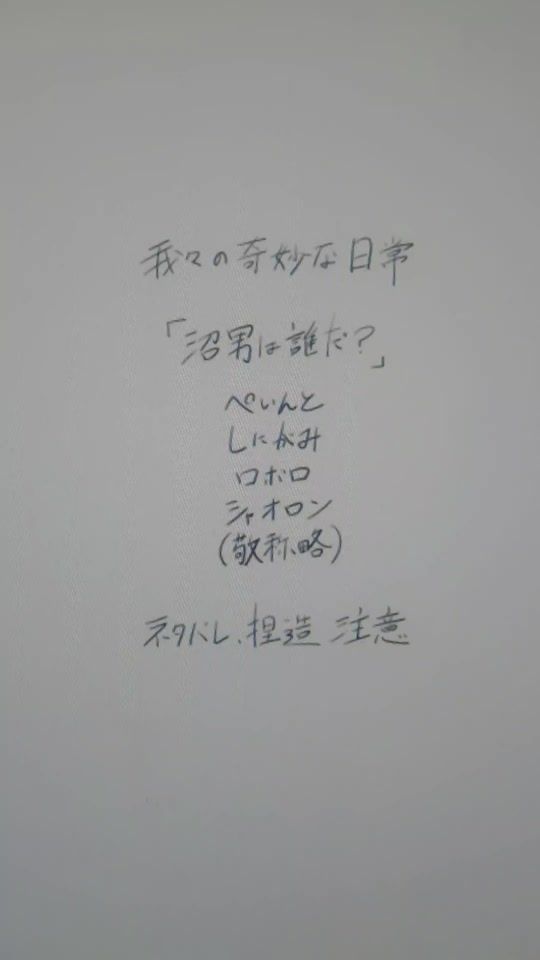 我々の奇妙な日常
「沼男は誰だ？」
ぺいんと
しにがみ
ロボロ
シャオロン
(敬称略)
ネタバレ、捏造 注意